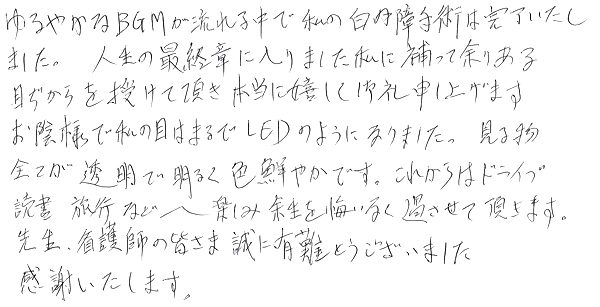 ゆるやかなBGMが流れる中で私の白内障手術は完了いたし
ました。 人生の最終章に入りました私に補って余りある
目ぢからを授けて頂き本当に嬉しく御礼申し上げます
お陰様で私の目はまるでLEDのようになりました。 見る物
全てが透明で明るく色鮮やかです。これからはドライブ
読書 旅行などへ楽しみ余生を悔いなく過させて頂きます。
先生、看護師の皆さま誠に有難とうございました
感謝いたします。